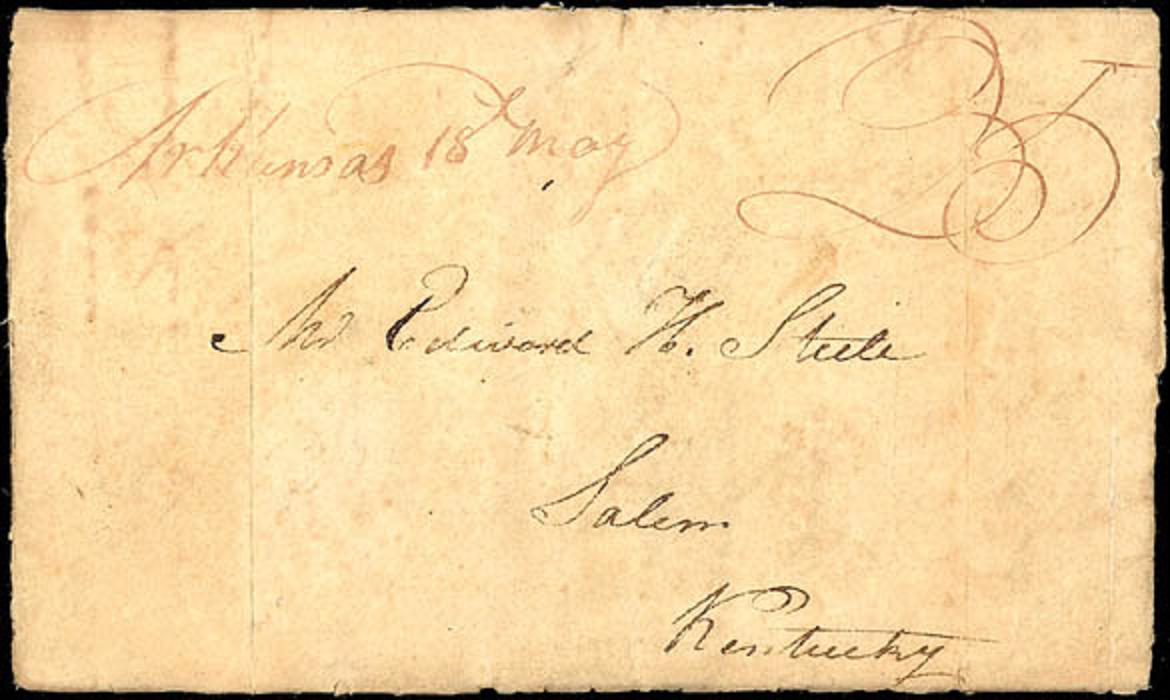 Arkansas 18 May
25
Mr Edward H. Steele
Salem
Kentucky